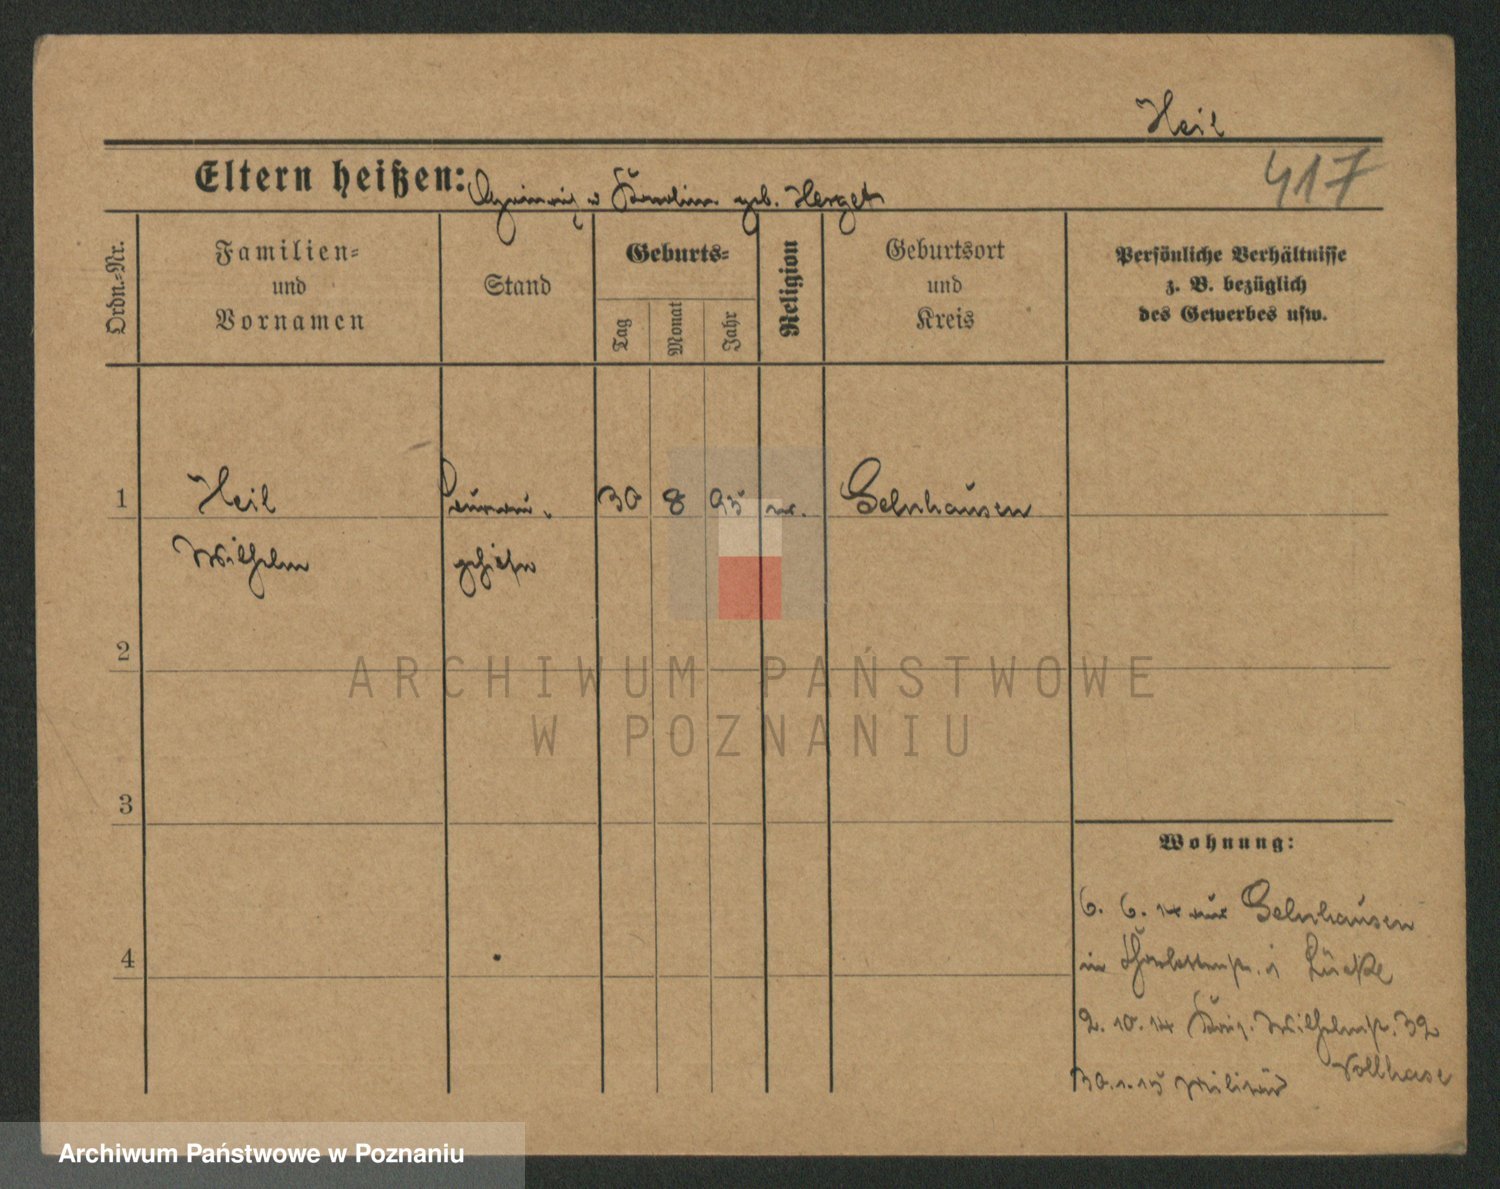 Heil
417
Eltern heißen: Heinrich u Karoline geb. Herget
Ordn.-Nr.
Familien-
und
Vornamen
Stand
Geburts-
Tag
Monat
Jahr
Religion
Geburtsort
und
Kreis
Persönliche Verhältnisse
z. B. bezüglich
des Gewerbes usw.
1
Heil
30
8
95
Gelnhausen
Wilhelm
2
ARCHIWUM PAŃSTWOWE
W POZNANIU
3
Wohnung:
6. 6. 14 aus Gelnhausen
4
2. 10. 14 Wilhelmstr. 32
Vollhase
30. 1. 15 Militär
Archiwum Państwowe w Poznaniu